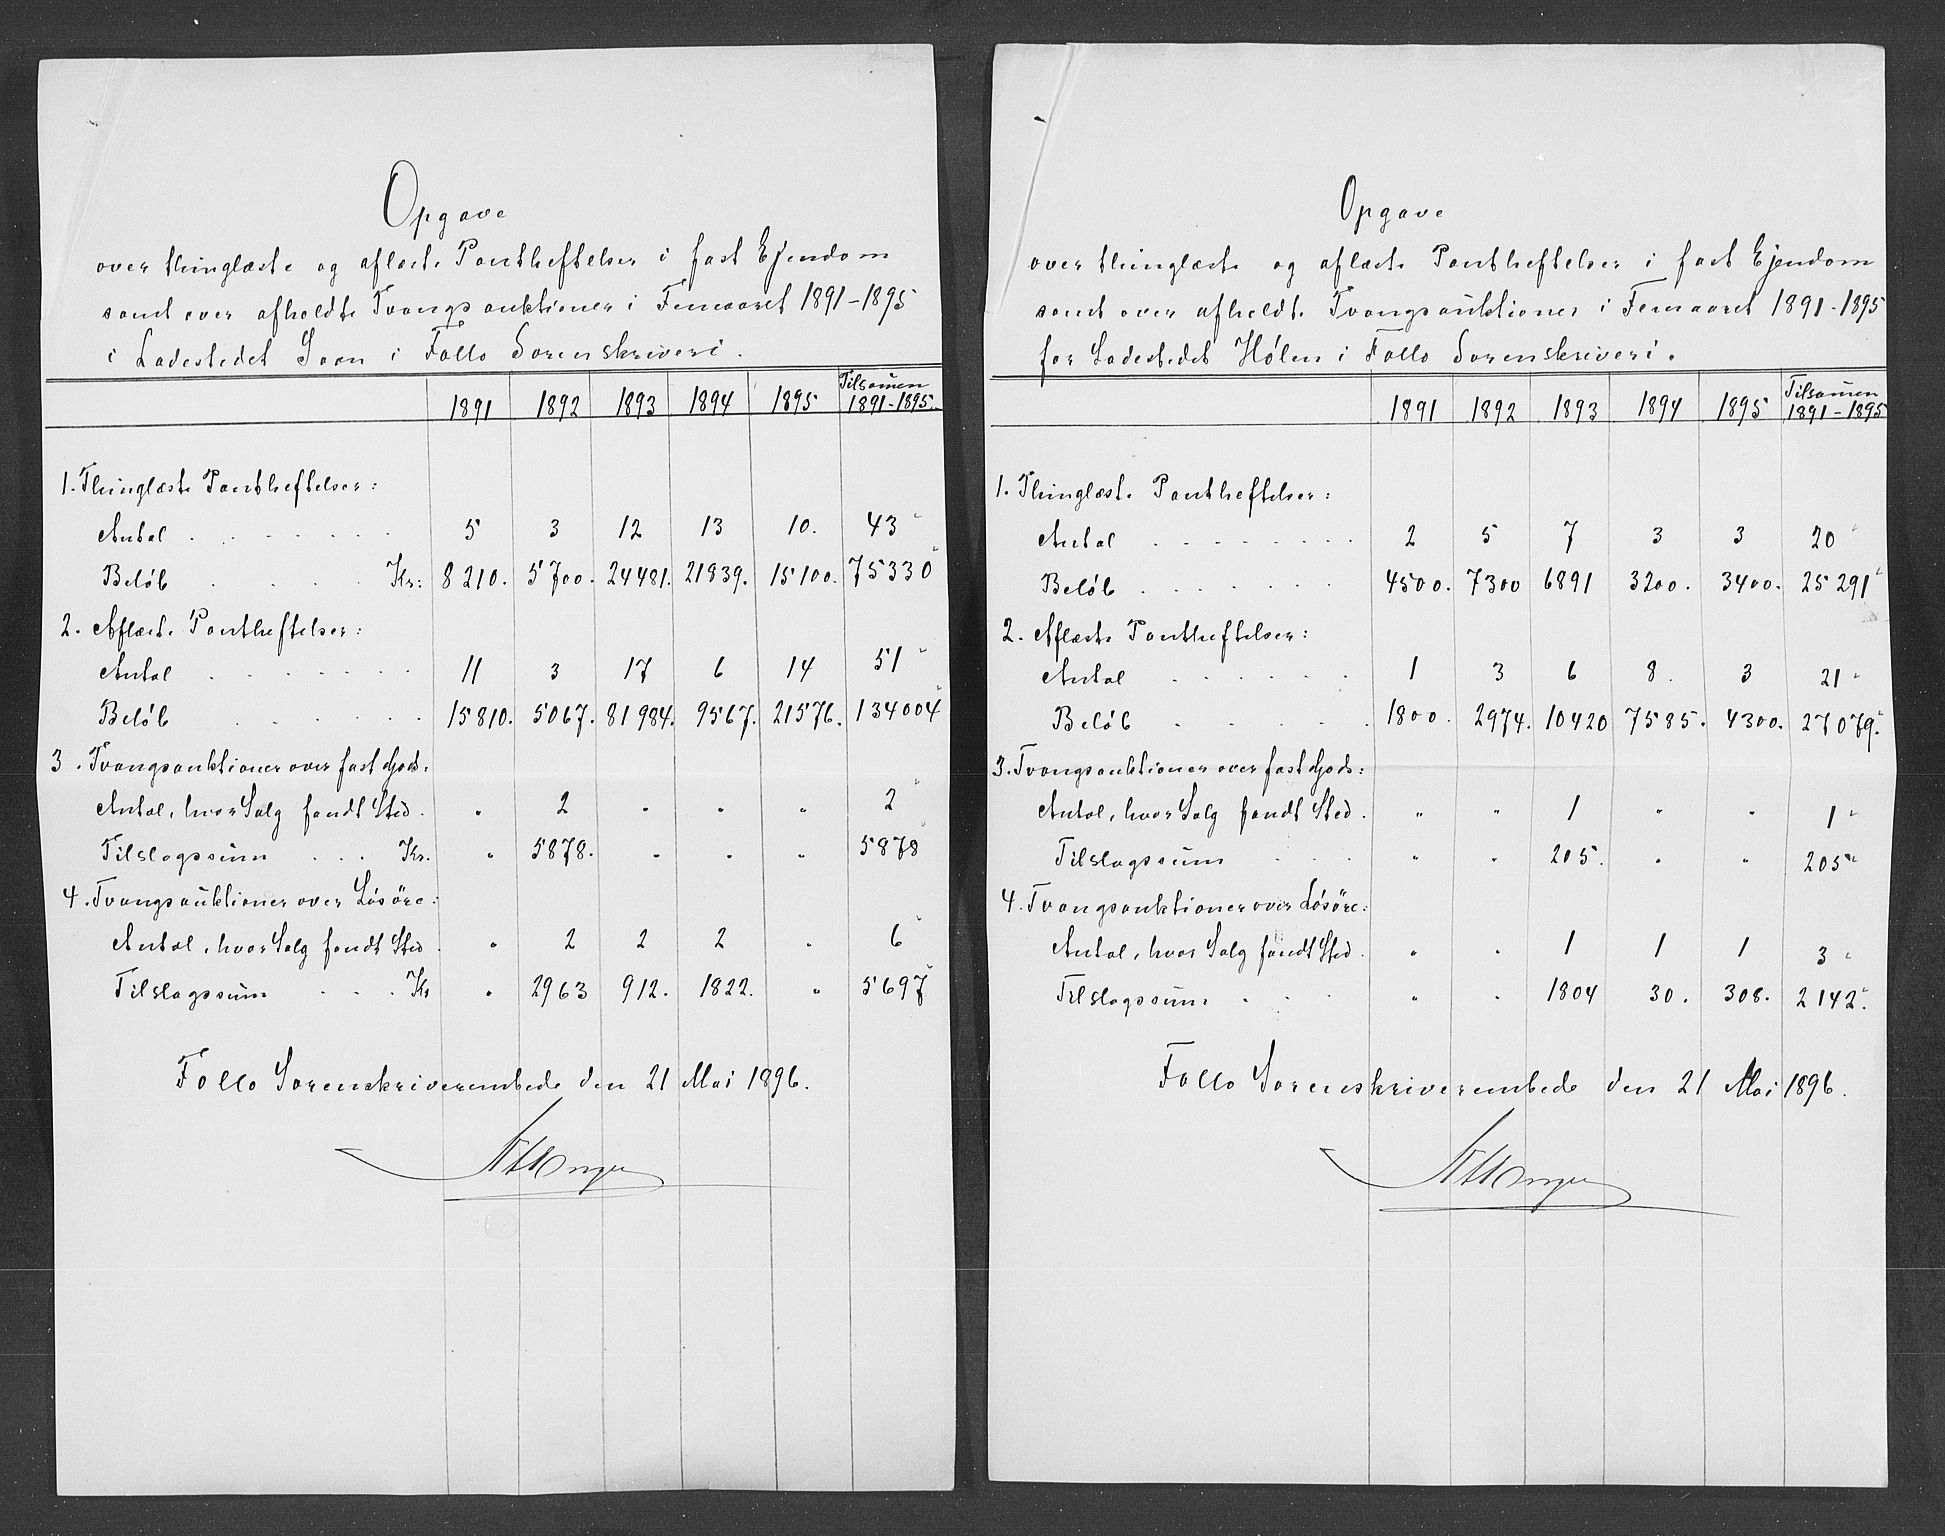 Opgave
over thinglæste og aflæste Pantheftelser i fast Ejendom
samt over afholdte Tvangsauktioner i Femaaret 1891-1895
i Ladestedet Soon i Follo Sorenskriveri.
1891 1892 1893 1894 1895 Tilsamen 1891-1895.
1. Thinglæste Pantheftelser:
Antal . . . . . . 5 3 12 13 10. 43
Beløb . . . . Kr: 8210. 5700. 24481. 21839. 15100. 75330
2. Aflæste Pantheftelser:
Antal . . . . . . 11 3 17 6 14 51
Beløb . . . . . 15810. 5067. 81984. 9567. 21576. 134004
3. Tvangsauktioner over fast Gods:
Antal, hvor Salg fandt Sted. " 2 " " " 2
Tilslagssum . . . Kr. " 5878. " " " 5878
4. Tvangsauktioner over Løsöre:
Antal, hvor Salg fandt Sted " 2 2 2 " 6
Tilslagssum . . . Kr " 2963 912. 1822. " 5697
Follo Sorenskriverembede den 21 Mai 1896.
Opgave
over thinglæste og aflæste Pantheftelser i fast Ejendom
samt over afholdte Tvangsauktioner i Femaaret 1891-1895
for Ladestedet Hølen i Follo Sorenskriveri.
1891 1892 1893 1894 1895 Tilsamen 1891-1895
1. Thinglæste Pantheftelser:
Antal . . . . . . . 2 5 7 3 3 20
Beløb . . . . . . 4500. 7300 6891 3200. 3400. 25291
2. Aflæste Pantheftelser:
Antal . . . . . . 1 3 6 8. 3 21
Beløb . . . . . 1800. 2974. 10420 7585. 4300. 27079.
3. Tvangsauktioner over fast Gods:
Antal, hvor Salg fandt Sted. " " 1 " " 1
Tilslagssum . . . " " 205. " " 205
4. Tvangsauktioner over Løsöre:
Antal, hvor Salg fandt Sted. " " 1 1 1 3
Tilslagssum . . . " " 1804 30. 308. 2142.
Follo Sorenskriverembede den 21 Mai 1896.